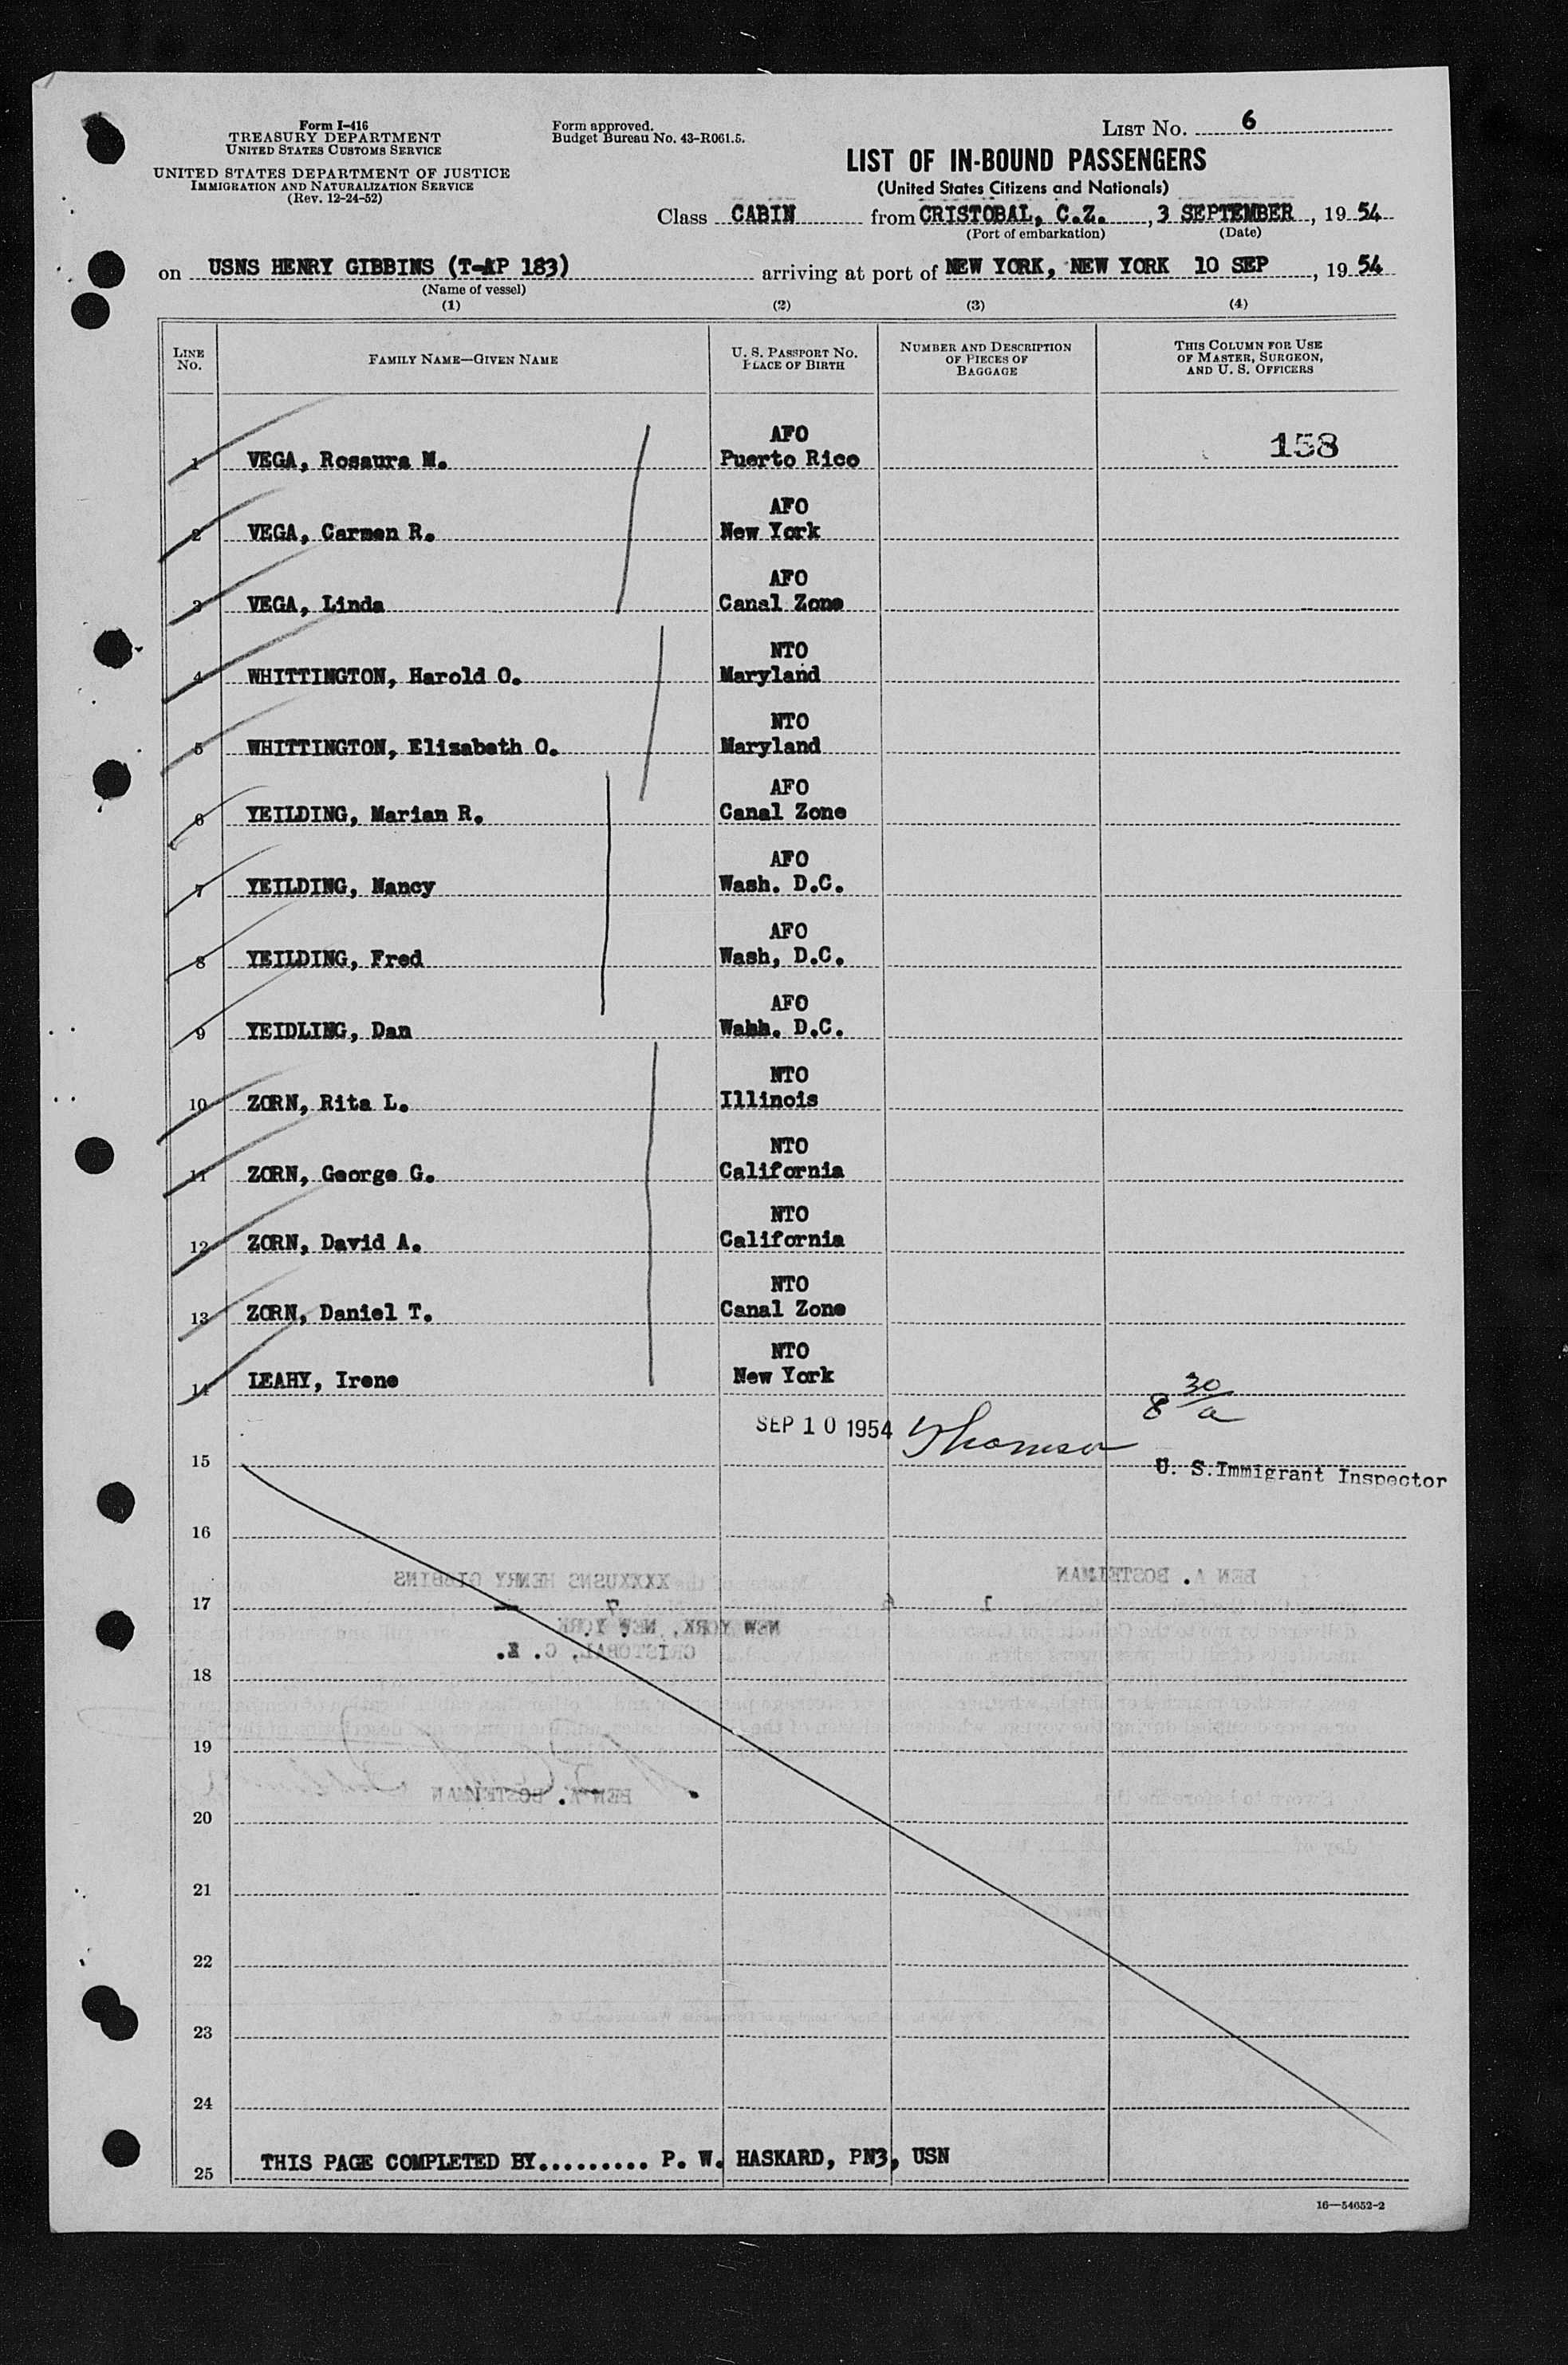 Form I-416
TREASURY DEPARTMENT
UNITED STATES CUSTOMS SERVICE
UNITED STATES DEPARTMENT OF JUSTICE
IMMIGRATION AND NATURALIZATION SERVICE
(Rev. 12-24-52)
Form approved.
Budget Bureau No. 43-R061.5.
LIST NO. 6
LIST OF IN-BOUND PASSENGERS
(United States Citizens and Nationals)
Class CABIN from CRISTOBAL, C.Z., 3 SEPTEMBER, 1954
(Port of embarkation) (Date)
on USNS HENRY GIBBINS (T-AP 183) arriving at port of NEW YORK, NEW YORK 10 SEP, 1954
(Name of vessel)
(1) (2) (3) (4)
LINE NO. FAMILY NAME—GIVEN NAME U. S. PASSPORT NO. PLACE OF BIRTH NUMBER AND DESCRIPTION OF PIECES OF BAGGAGE THIS COLUMN FOR USE OF MASTER, SURGEON, AND U. S. OFFICERS
AFO
1 VEGA, Rosaura M. Puerto Rico 158
AFO
2 VEGA, Carmen R. New York
AFO
3 VEGA, Linda Canal Zone
NTO
4 WHITTINGTON, Harold O. Maryland
NTO
5 WHITTINGTON, Elizabeth O. Maryland
AFO
6 YEILDING, Marian R. Canal Zone
AFO
7 YEILDING, Nancy Wash. D.C.
AFO
8 YEILDING, Fred Wash, D.C.
AFO
9 YEIDLING, Dan Wahh. D.C.
NTO
10 ZORN, Rita L. Illinois
NTO
11 ZORN, George G. California
NTO
12 ZORN, David A. California
NTO
13 ZORN, Daniel T. Canal Zone
NTO
14 LEAHY, Irene New York
8 30/a
SEP 10 1954 Thomson
15 U. S. Immigrant Inspector
16
XXXXUSNS HENRY GIBBINS BEN A. BOSTELMAN
17
NEW YORK, NEW YORK
CRISTOBAL, C. Z.
18
19
BEN A. BOSTELMAN
20
21
22
23
24
25 THIS PAGE COMPLETED BY.......... P. W. HASKARD, PN3, USN
16—54652-2